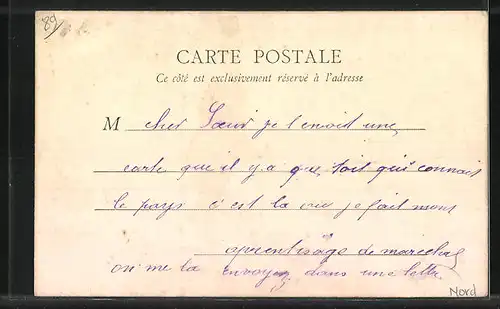 89
CARTE POSTALE
Ce côté est exclusivement réservé à l'adresse
M cher Soeur je t'envoit une
carte que il y a que toit qui connait
le pays c'est la ou je fait mons
aprentisage de marechal
on me la envoyez dans une lettre
Nord